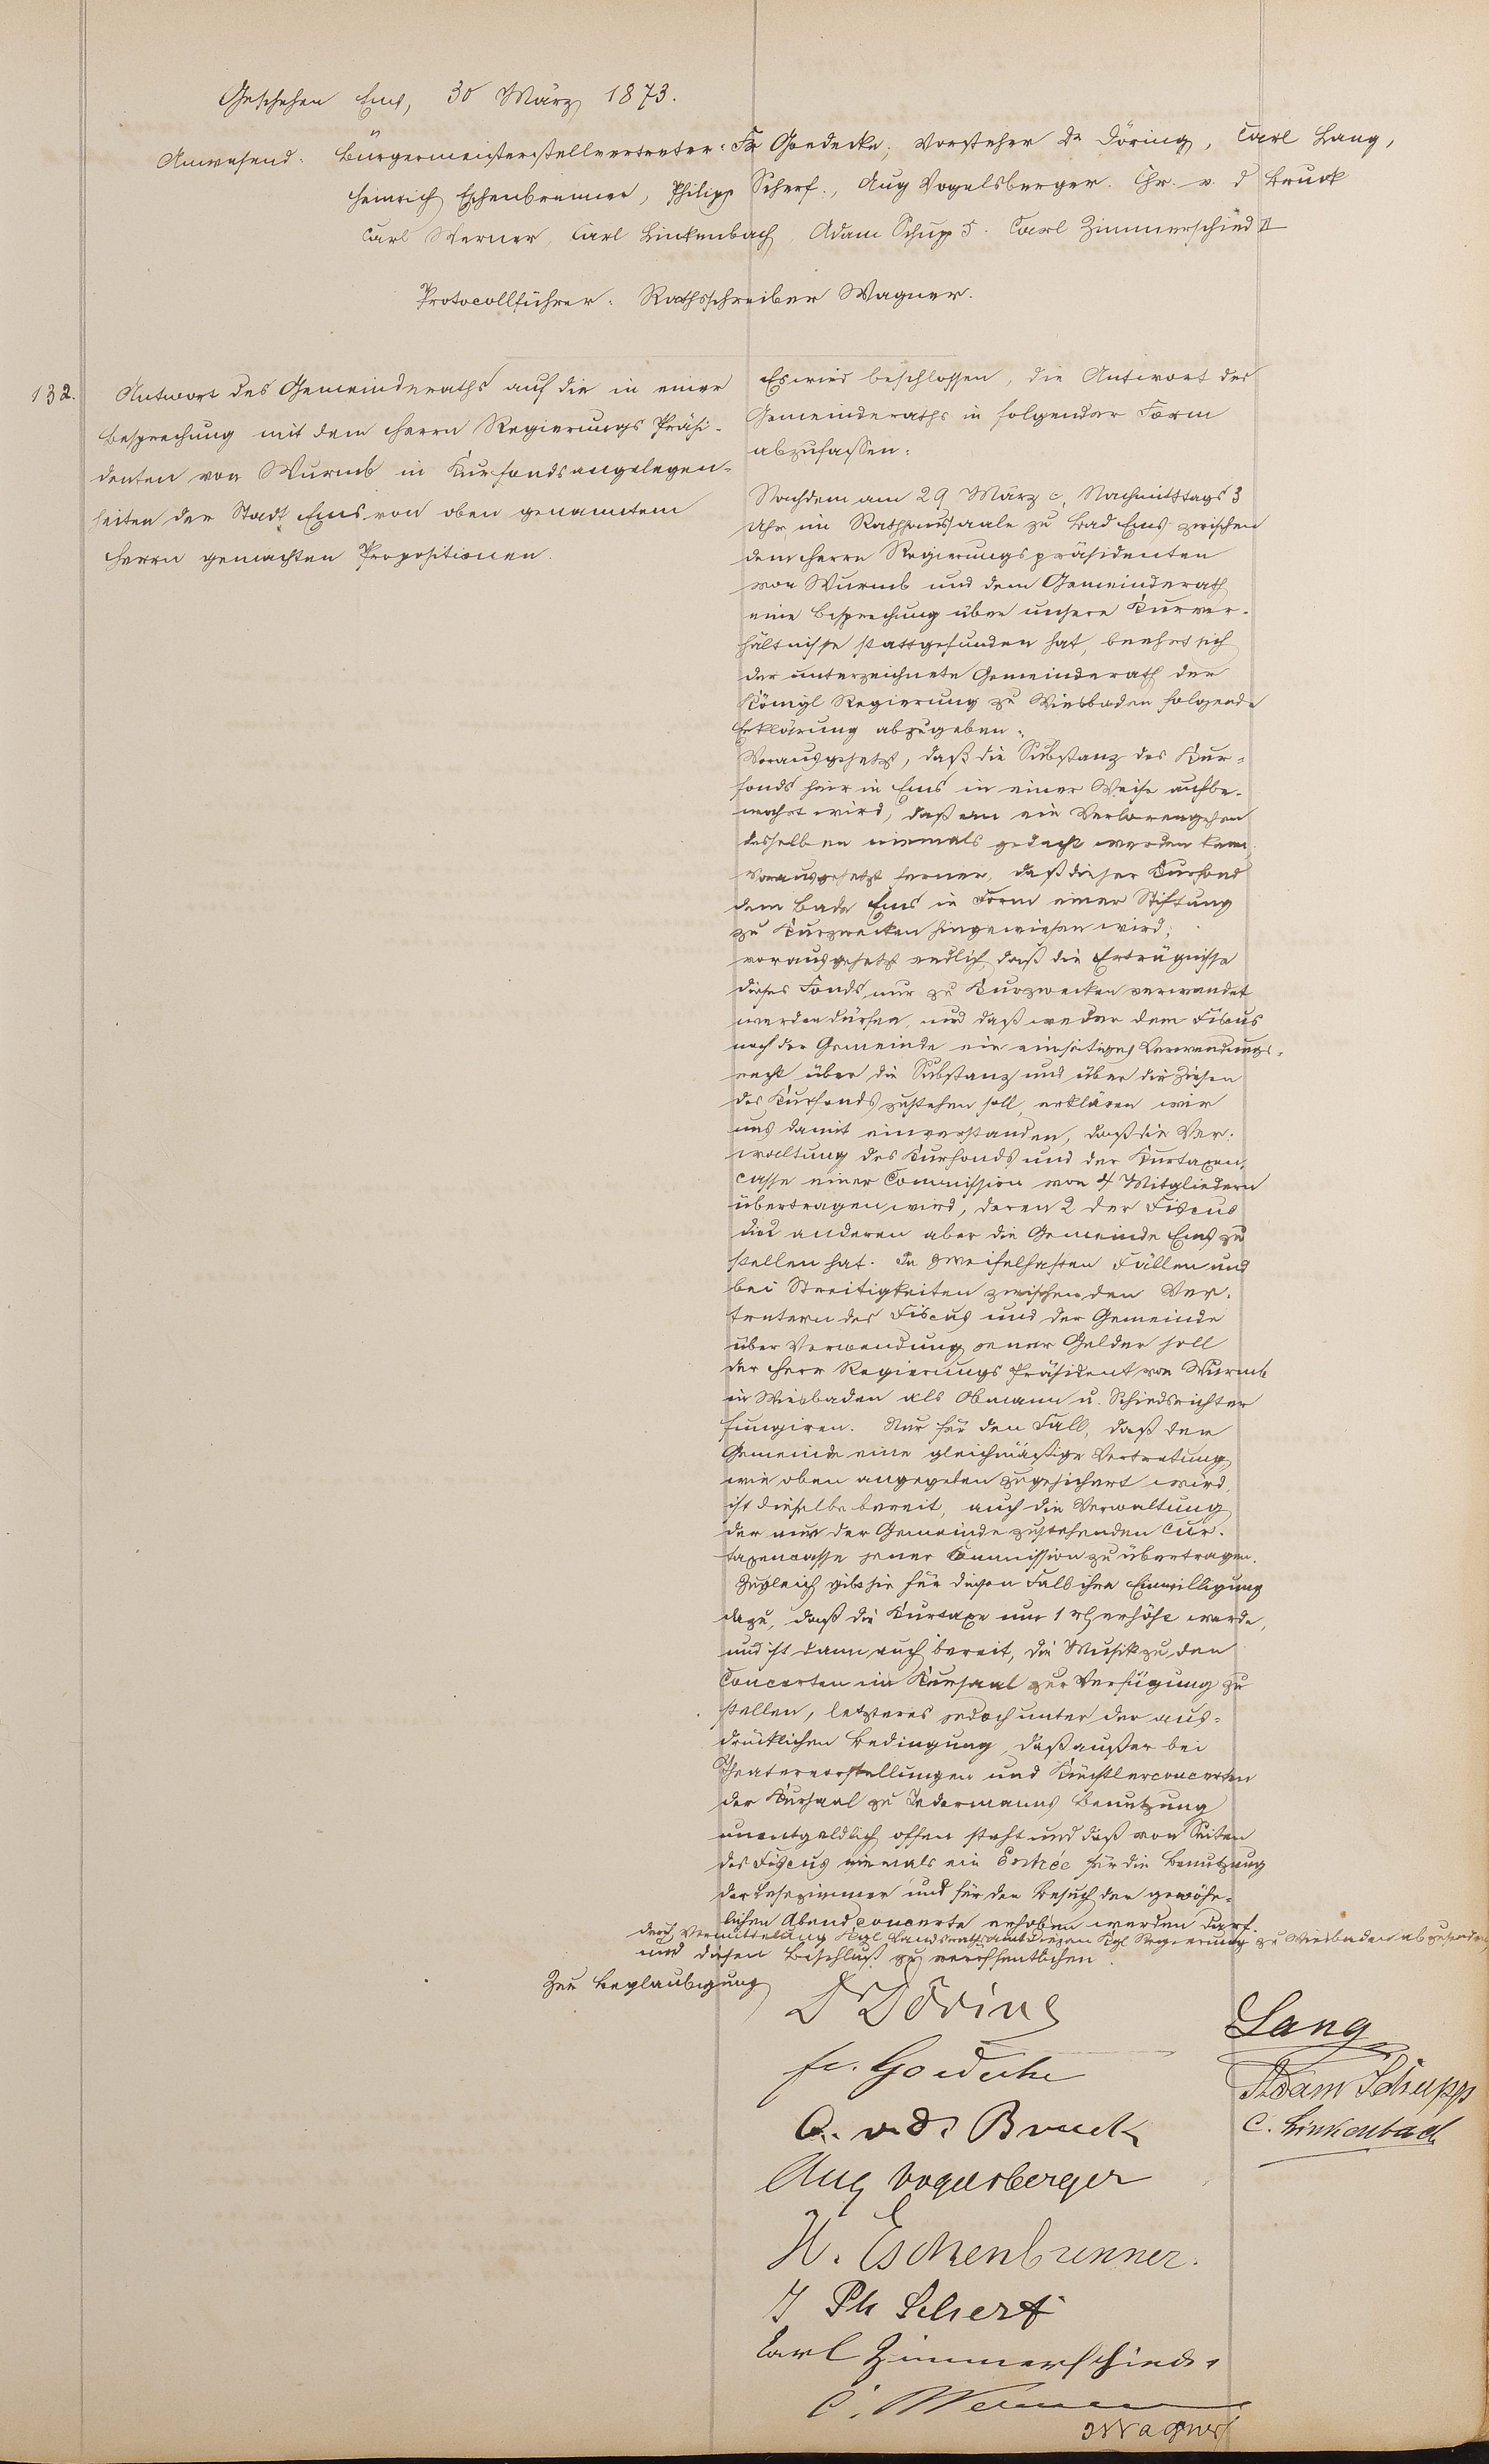 Geschehen Ems, 30 März 1873.
Anwesend: Bürgermeisterstellvertreter: Fr Goedecke; Vorsteher Dr Döring, Carl Lang,
Heinrich Eschenbrenner, Philipp Scherf., Aug Vogelsberger. Chr. v. d Bruck
Carl Werner, Carl Linkenbach, Adam Schupp 5. Carl Zimmerschied II
Protocollführer: Rathsschreiber Wagner.
132.
Antwort des Gemeinderaths auf die in einer
Besprechung mit dem Herrn Regierungs Präsi-
denten von Wurmb in Kurfondsangelegen-
heiten der Stadt Ems von oben genanntem
Herrn gemachten Propositionen.
Es wird beschlossen, die Antwort des
Gemeinderaths in folgender Form
abzufassen:
Nachdem am 29 März c, Nachmittags 3
Uhr, im Rathhaussaale zu Bad Ems zwischen
dem Herrn Regierungspräsidenten
von Wurmb und dem Gemeinderath
eine Besprechung über unsere Kurver-
hältnisse stattgefunden hat, beehrt sich
der unterzeichnete Gemeinderath der
Königl Regierung zu Wiesbaden folgende
Erklärung abzugeben:
Vorausgesetzt, daß die Substanz des Kur-
fonds hier in Ems in einer Weise aufbe-
wahrt wird, daß an ein Verlorengehen
desselben niemals gedacht werden kann,
vorausgesetzt ferner, daß dieser Kurfond
dem Bade Ems in Form einer Stiftung
zu Kurzwecken hingewiesen wird;
vorausgesetzt endlich, daß die Erträgnisse
dieses Fonds nur zu Kurzwecken verwendet
werden dürfen, und daß weder dem Fiscus
noch der Gemeinde ein einseitiges Verwendungs-
recht über die Substanz und über die Zinsen
des Kurfonds zustehen soll, erklären wir
uns damit einverstanden, daß die Ver-
waltung des Kurfonds und der Kurtaxen-
casse einer Commission von 4 Mitgliedern
übertragen wird, deren 2 der Fiscus
die 2 anderen aber die Gemeinde Ems zu
stellen hat. In zweifelhaften Fällen und
bei Streitigkeiten zwischen den Ver-
tretern des Fiscus und der Gemeinde
über Verwendung jener Gelder soll
der Herr Regierungs Präsident von Wurmb
in Wiesbaden als Obmann u. Schiedsrichter
fungiren. Nur für den Fall, daß der
Gemeinde eine gleichmäßige Vertretung,
wie oben angegeben zugesichert wird,
ist dieselbe bereit, auch die Verwaltung
der nur der Gemeinde zustehenden Cur-
taxencasse jener Commission zu übertragen.
Zugleich gibt sie für diesen Fall ihre Einwilligung
dazu, daß die Kurtaxe um 1 rh erhöht werde,
und ist dann auch bereit, die Musik zu den
Concerten im Kursaal zur Verfügung zu
stellen, letzteres jedoch unter der aus-
drücklichen Bedingung, daß außer bei
Theatervorstellungen und Künstlerconcerten
der Kursaal zu Jedermanns Benutzung
unentgeldlich offen steht und daß von Seiten
des Fiscus niemals ein Entrée für die Benutzung
der Lesezimmer und für den Besuch der gewöhn-
lichen Abendconcerte erhoben werden darf.
durch Vermittelung Kgl Landrathsamt diesen Kgl Regierung zu Wiesbaden abzusenden
und diesen Beschluß zu veröffentlichen.
Zur Beglaubigung
Dr Döring
Lang
fr. Goedecke
Adam Schupp
C. v. d. Bruck
C. Linkenbach
Aug Vogelsberger
H. Eschenbrenner.
J Ph Scherf
Carl Zimmerschied.
C. Werner
Wagner